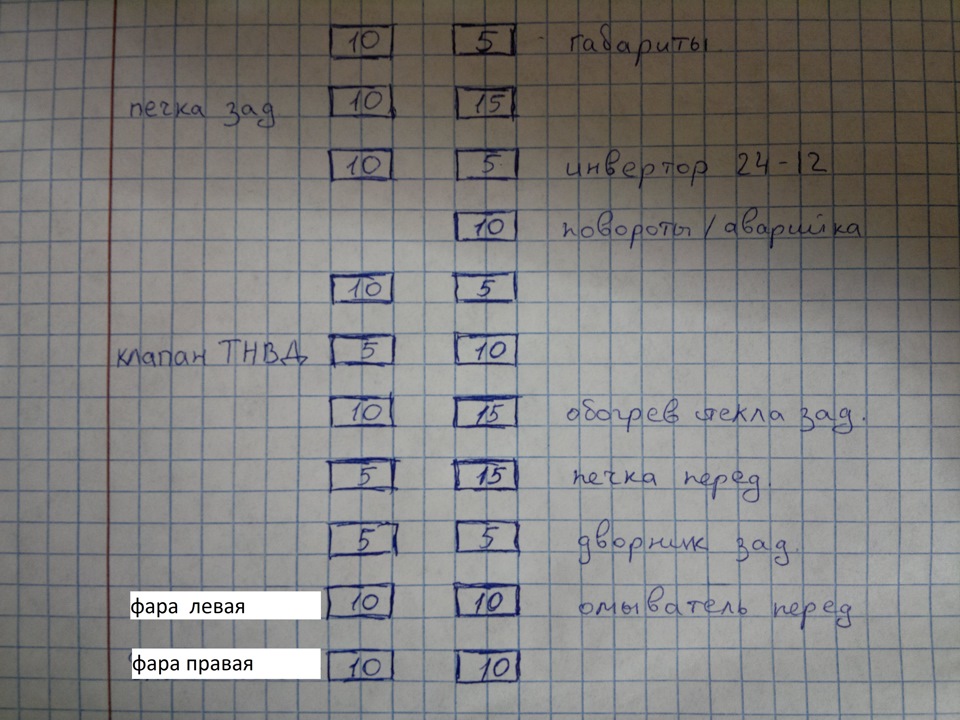 10 5 габариты
печка зад 10 15
10 5 инвертор 24-12
10 повороты/аварийка
10 5
клапан ТНВД 5 10
10 15 обогрев стекла зад.
5 15 печка перед.
5 5 дворник зад.
фара левая 10 10 омыватель перед
фара правая 10 10